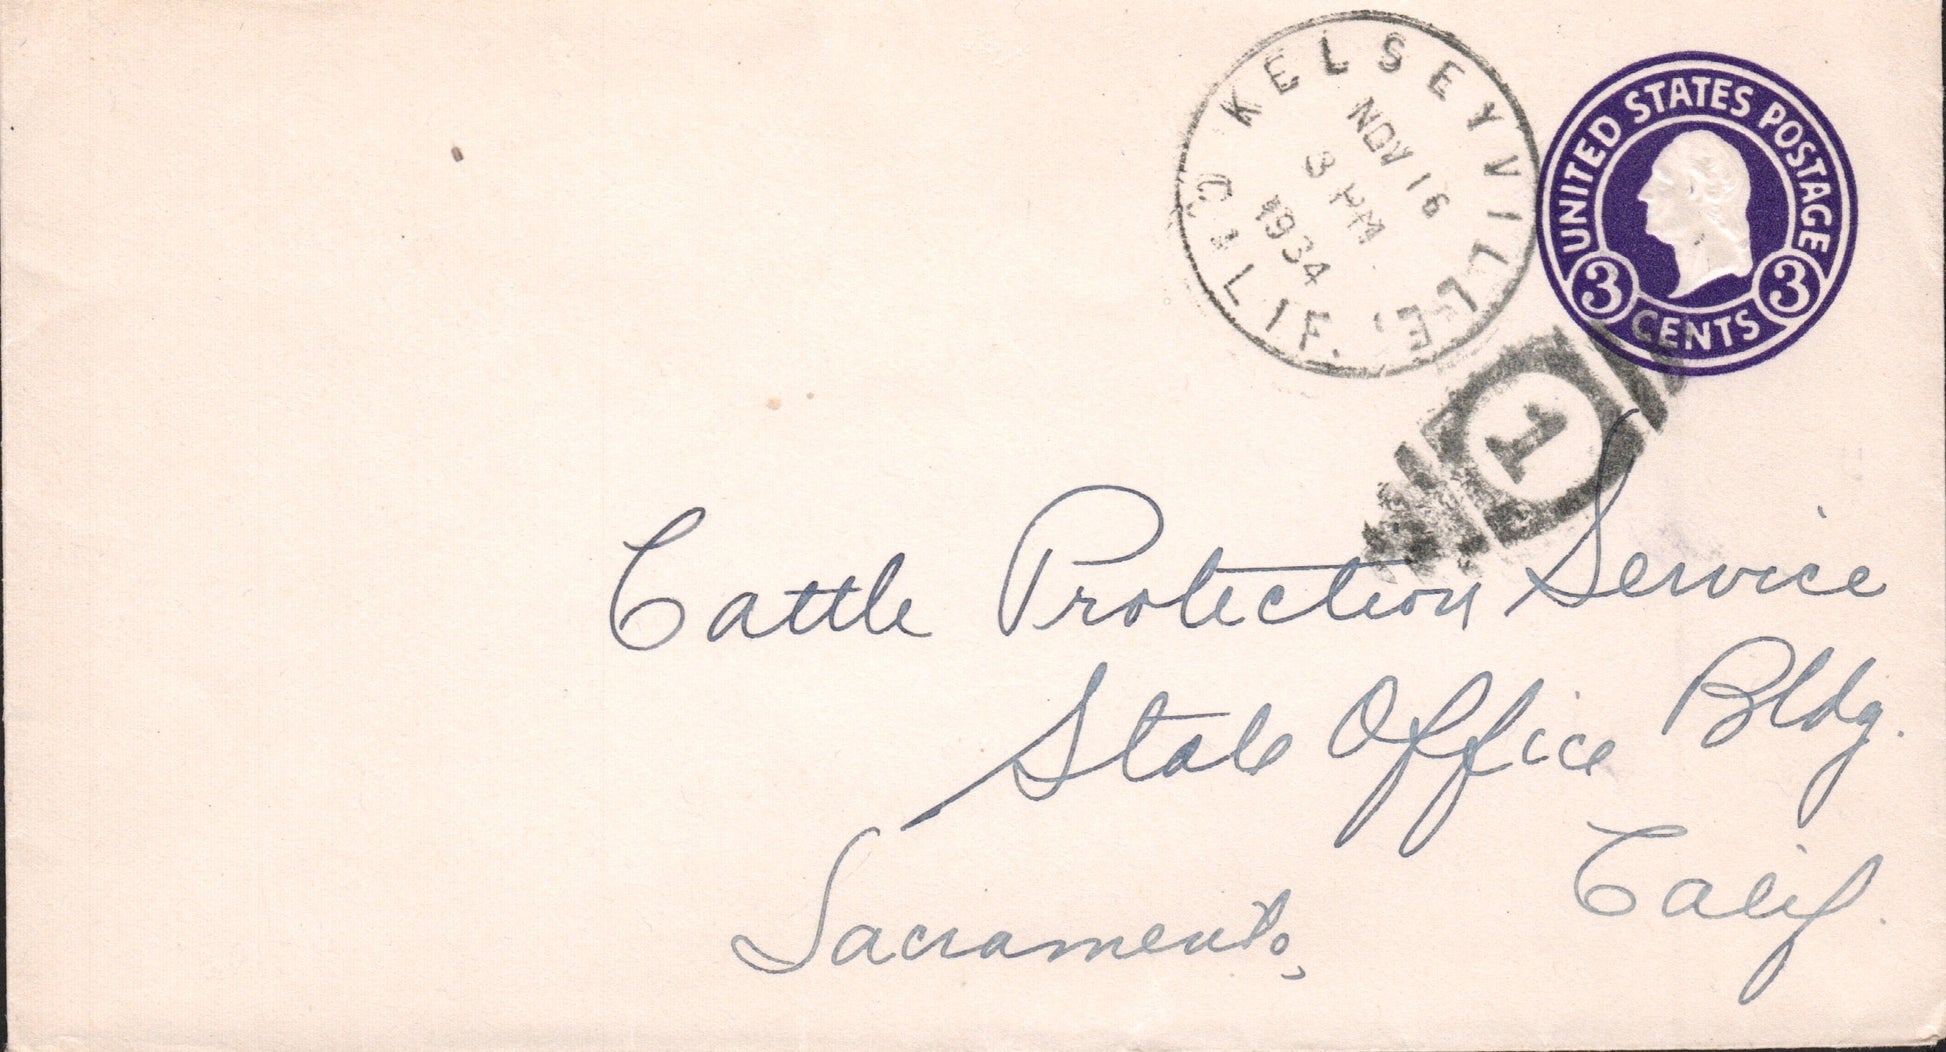 KELSEYVILLE,
CALIF.
NOV 16
3 PM
1934
UNITED STATES POSTAGE
3 CENTS 3
1
Cattle Protection Service
State Office Bldg.
Sacramento, Calif.